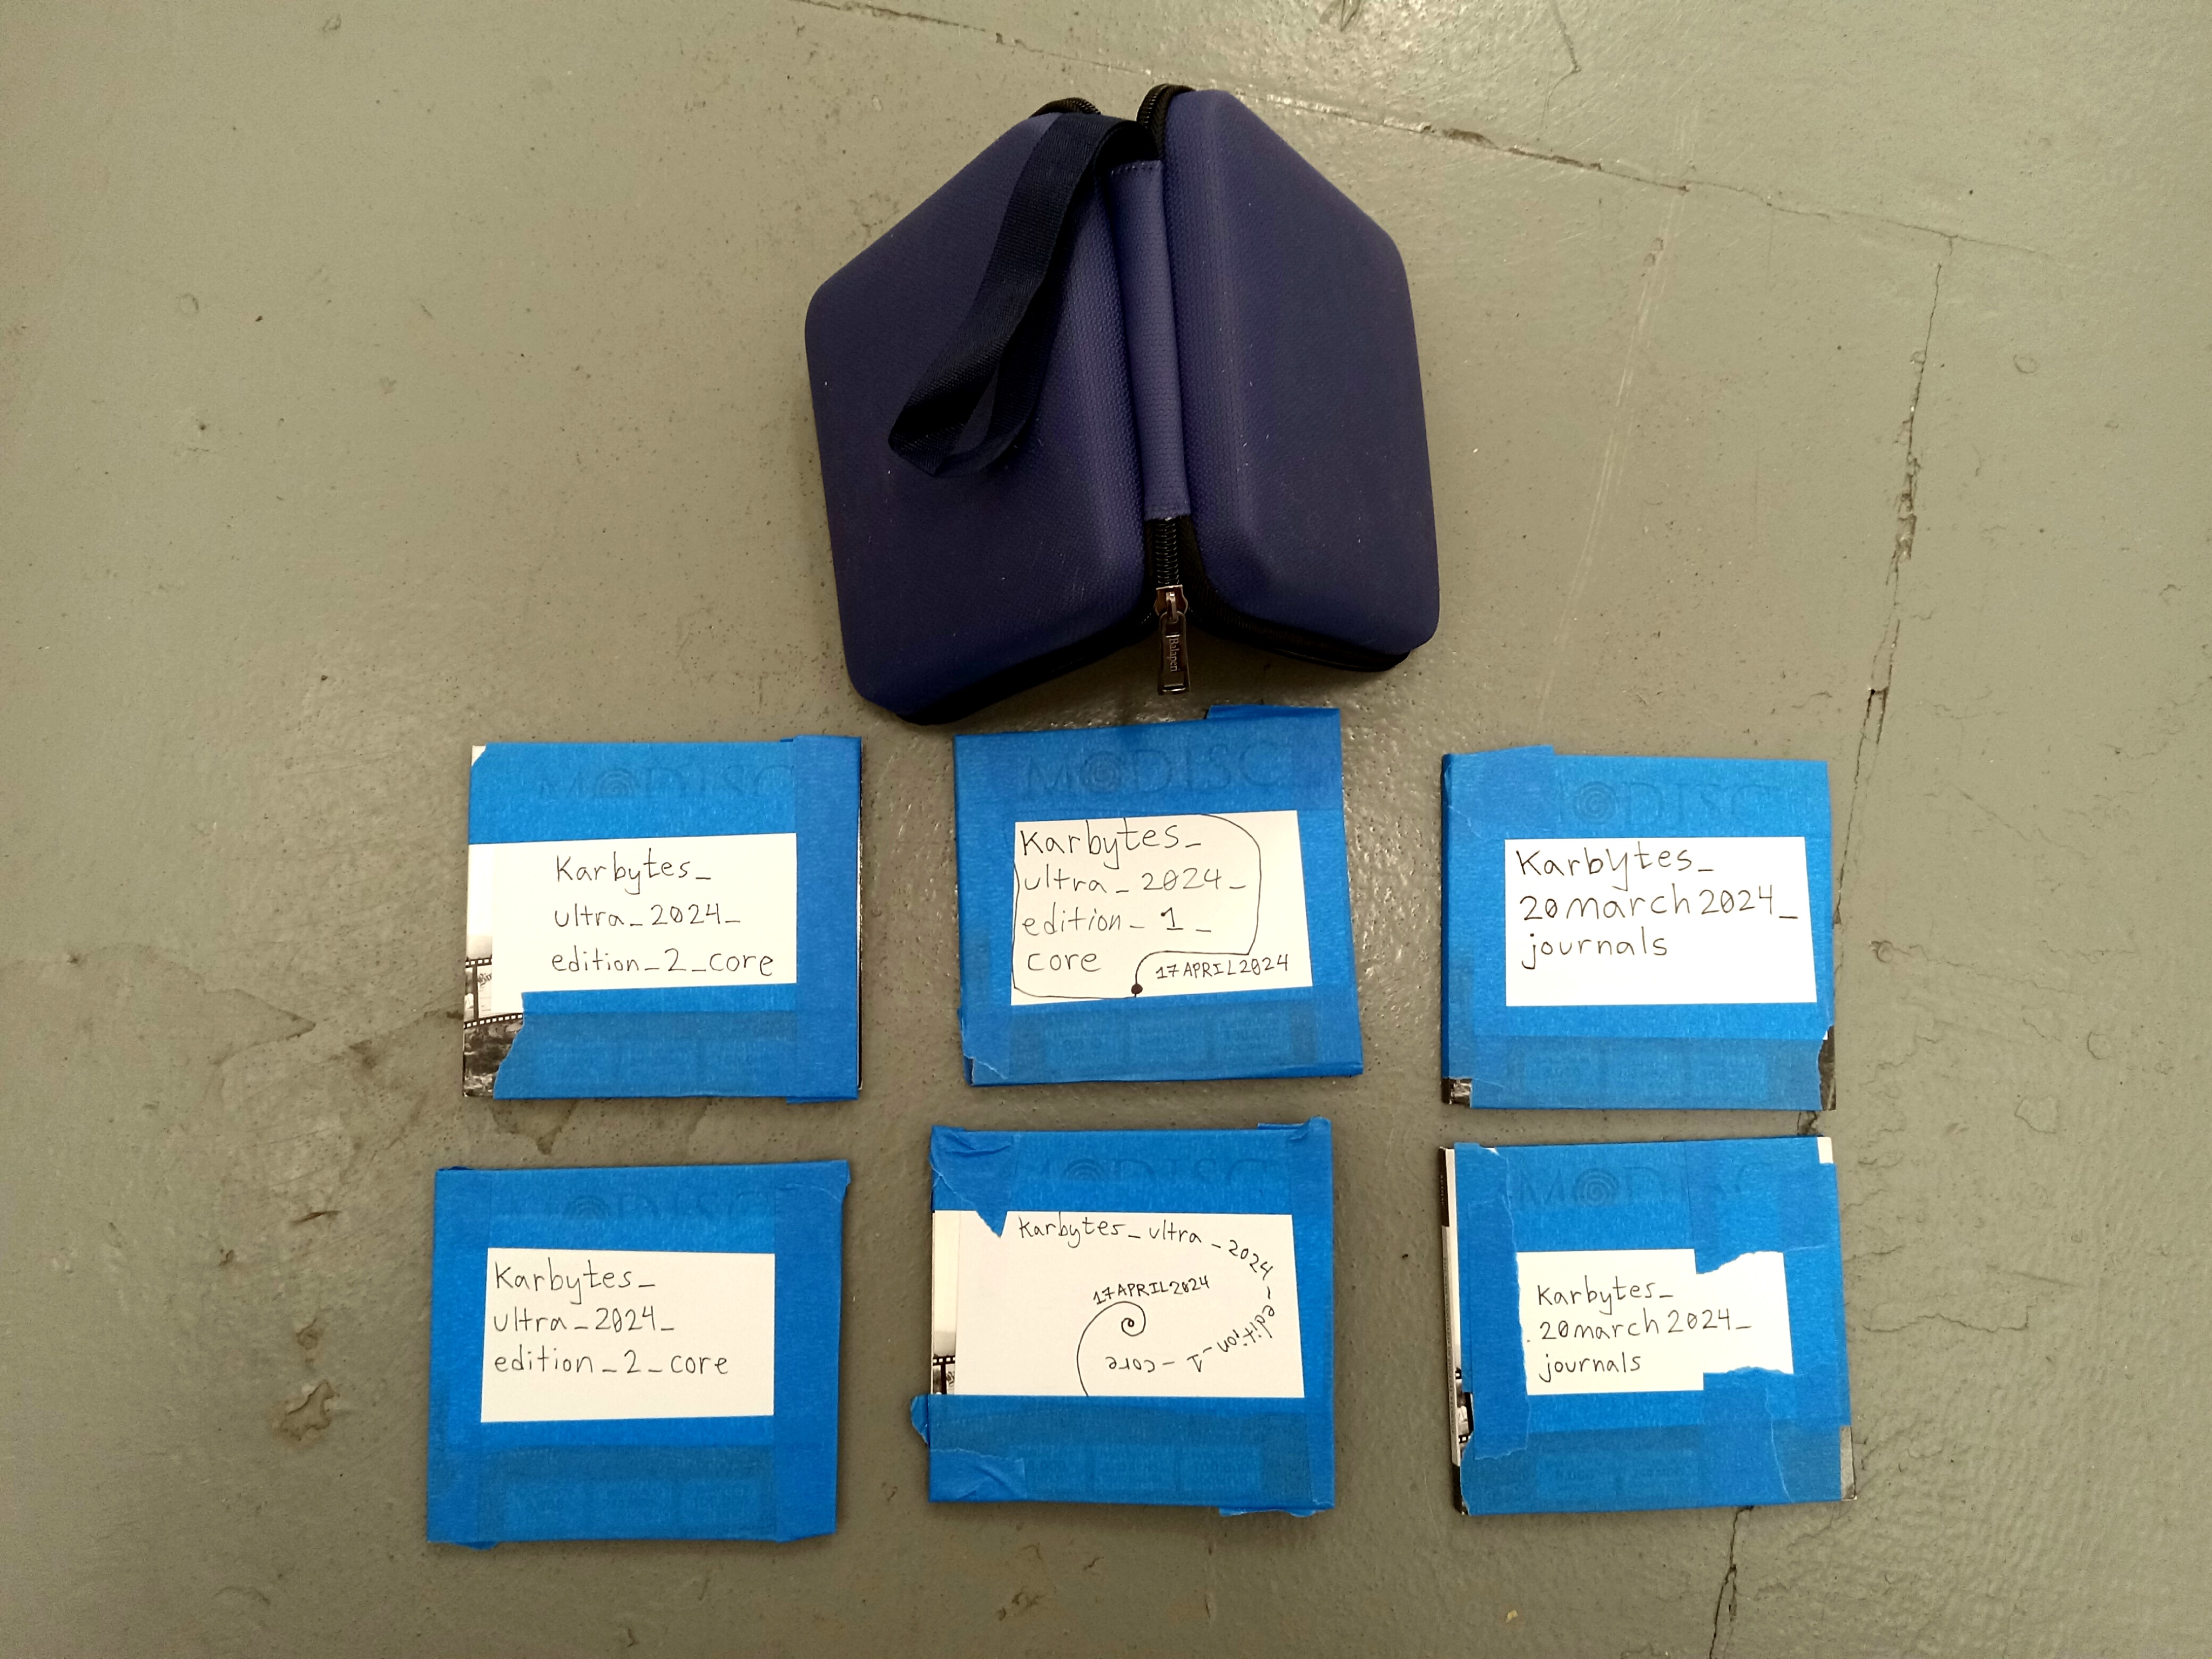 Balapen
M DISC
Karbytes_
ultra_2024_
edition_2_core
M DISC
Karbytes_
ultra_2024_
edition_1_
core
17APRIL2024
DISC
Karbytes_
20march2024_
journals
M DISC
Karbytes_
ultra_2024_
edition_2_core
M DISC
Karbytes_ultra_2024_edition_1_core
17APRIL2024
M DISC
Karbytes_
20march2024_
journals